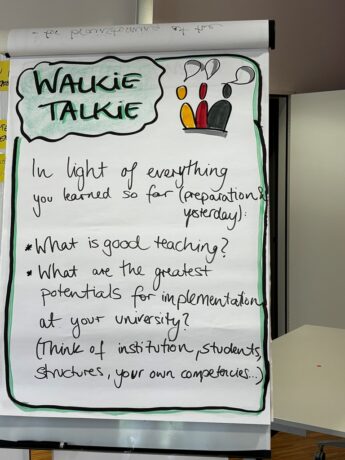 WALKIE
TALKIE
In light of everything
you learned so far (preparation &
yesterday):
* What is good teaching?
* What are the greatest
potentials for implementation
at your university?
(Think of institution, students,
structures, your own competencies...)